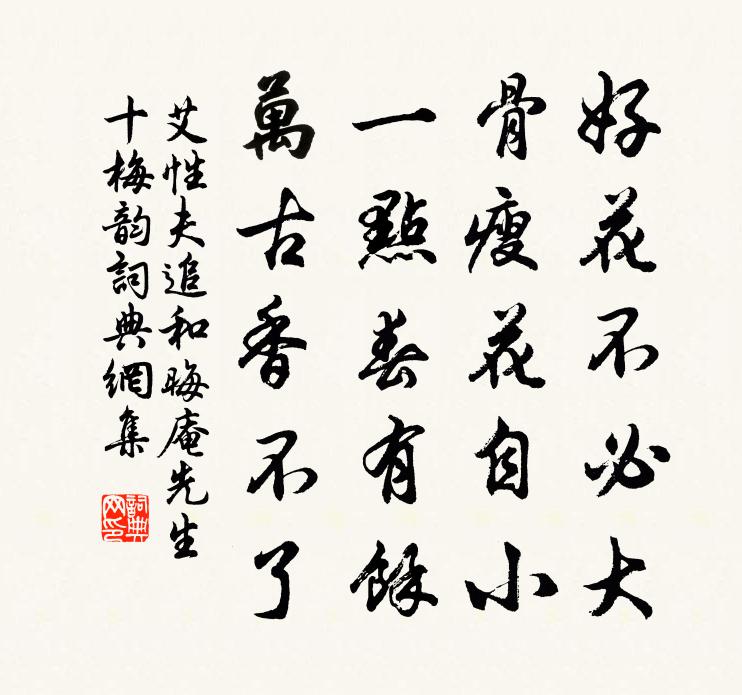 好花不必大
骨瘦花自小
一點春有餘
萬古香不了
艾性夫追和晦庵先生
十梅韵詞典網集
詞典網印